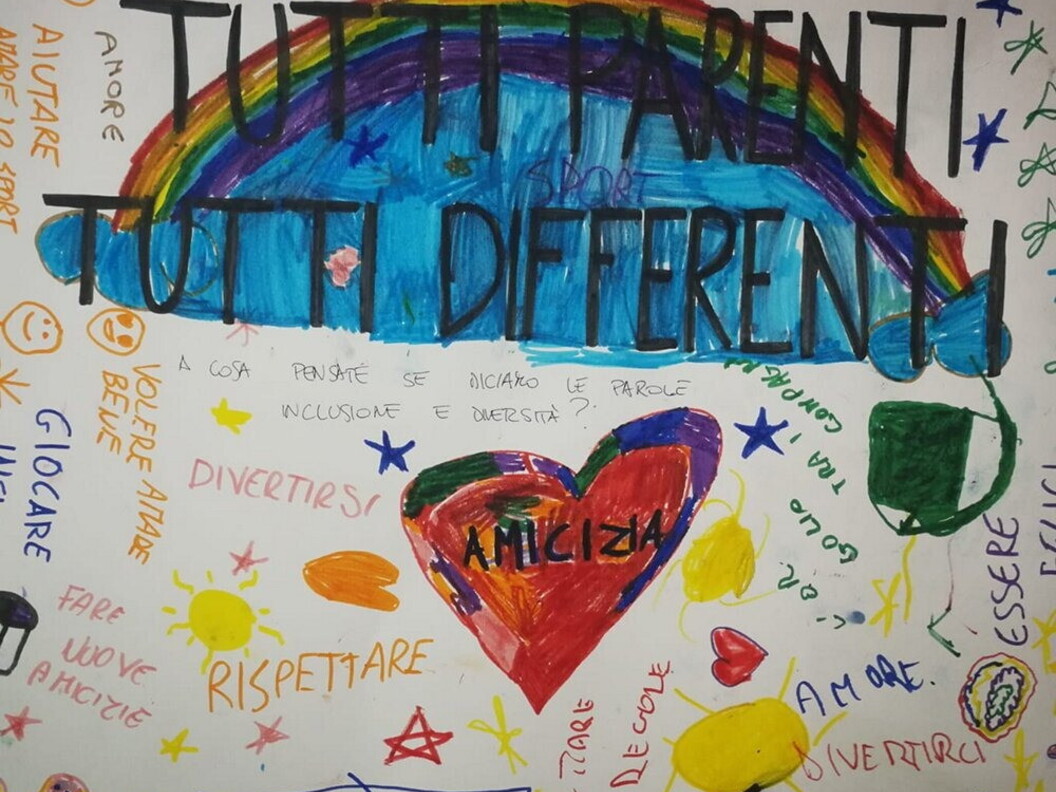 TUTTI PARENTI
TUTTI DIFFERENTI
SPORT
AMORE
AIUTARE
AMARE LO SPORT
A COSA PENSATE SE DICIAMO LE PAROLE
INCLUSIONE E DIVERSITÀ?
VOLERE AMARE
BENE
GIOCARE
DIVERTIRSI
AMICIZIA
TRA I COMPAGNI
ESSERE
FELICI
FARE
NUOVE
AMICIZIE
RISPETTARE
REGOLE
AMORE.
DIVERTIRCI